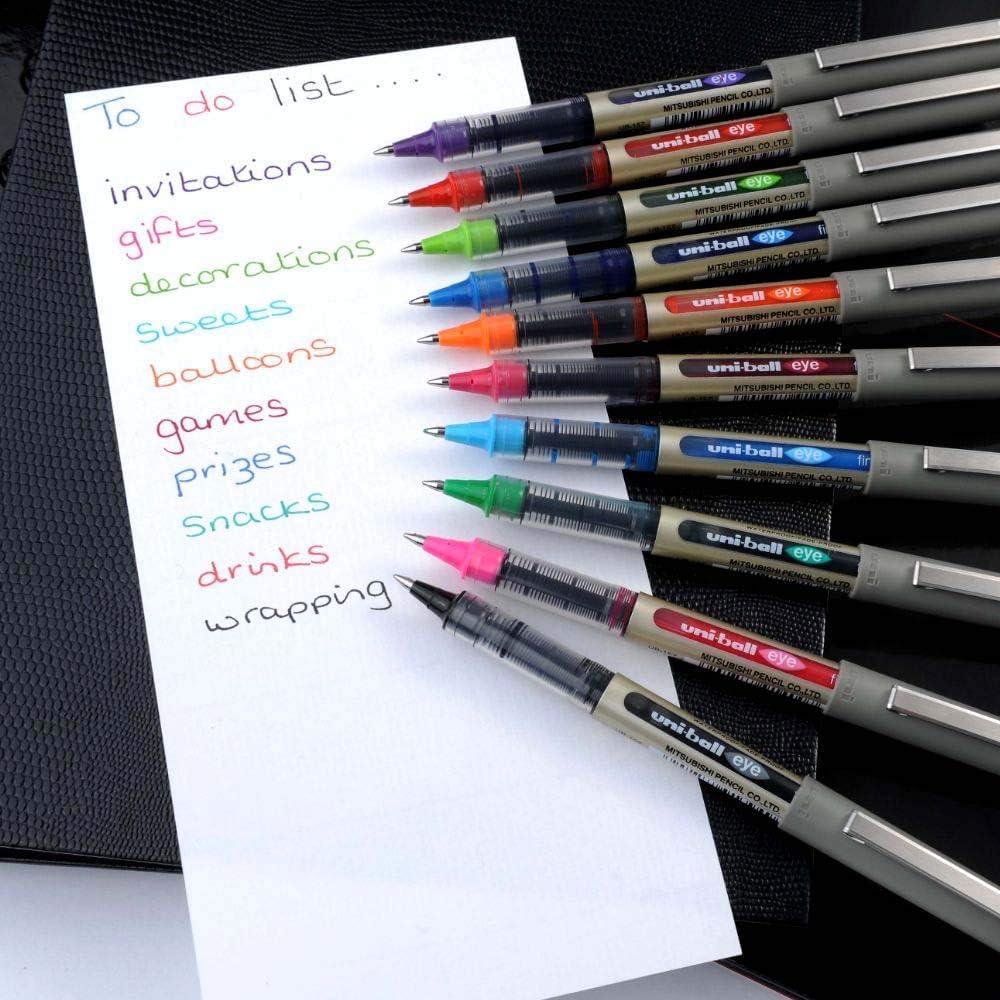 To do list ....
invitations
gifts
decorations
sweets
balloons
games
prizes
snacks
drinks
wrapping
uni-ball eye
MITSUBISHI PENCIL CO.,LTD.
uni-ball eye
MITSUBISHI PENCIL CO.,LTD.
uni-ball eye
MITSUBISHI PENCIL CO.,LTD.
uni-ball eye fi
MITSUBISHI PENCIL CO.,LTD.
uni-ball eye
MITSUBISHI PENCIL CO.,LTD.
uni-ball eye
MITSUBISHI PENCIL CO.,LTD.
uni-ball eye fin
MITSUBISHI PENCIL CO.,LTD.
uni-ball eye
MITSUBISHI PENCIL CO.,LTD.
uni-ball eye f
MITSUBISHI PENCIL CO.,LTD.
uni-ball eye
MITSUBISHI PENCIL CO.,LTD.